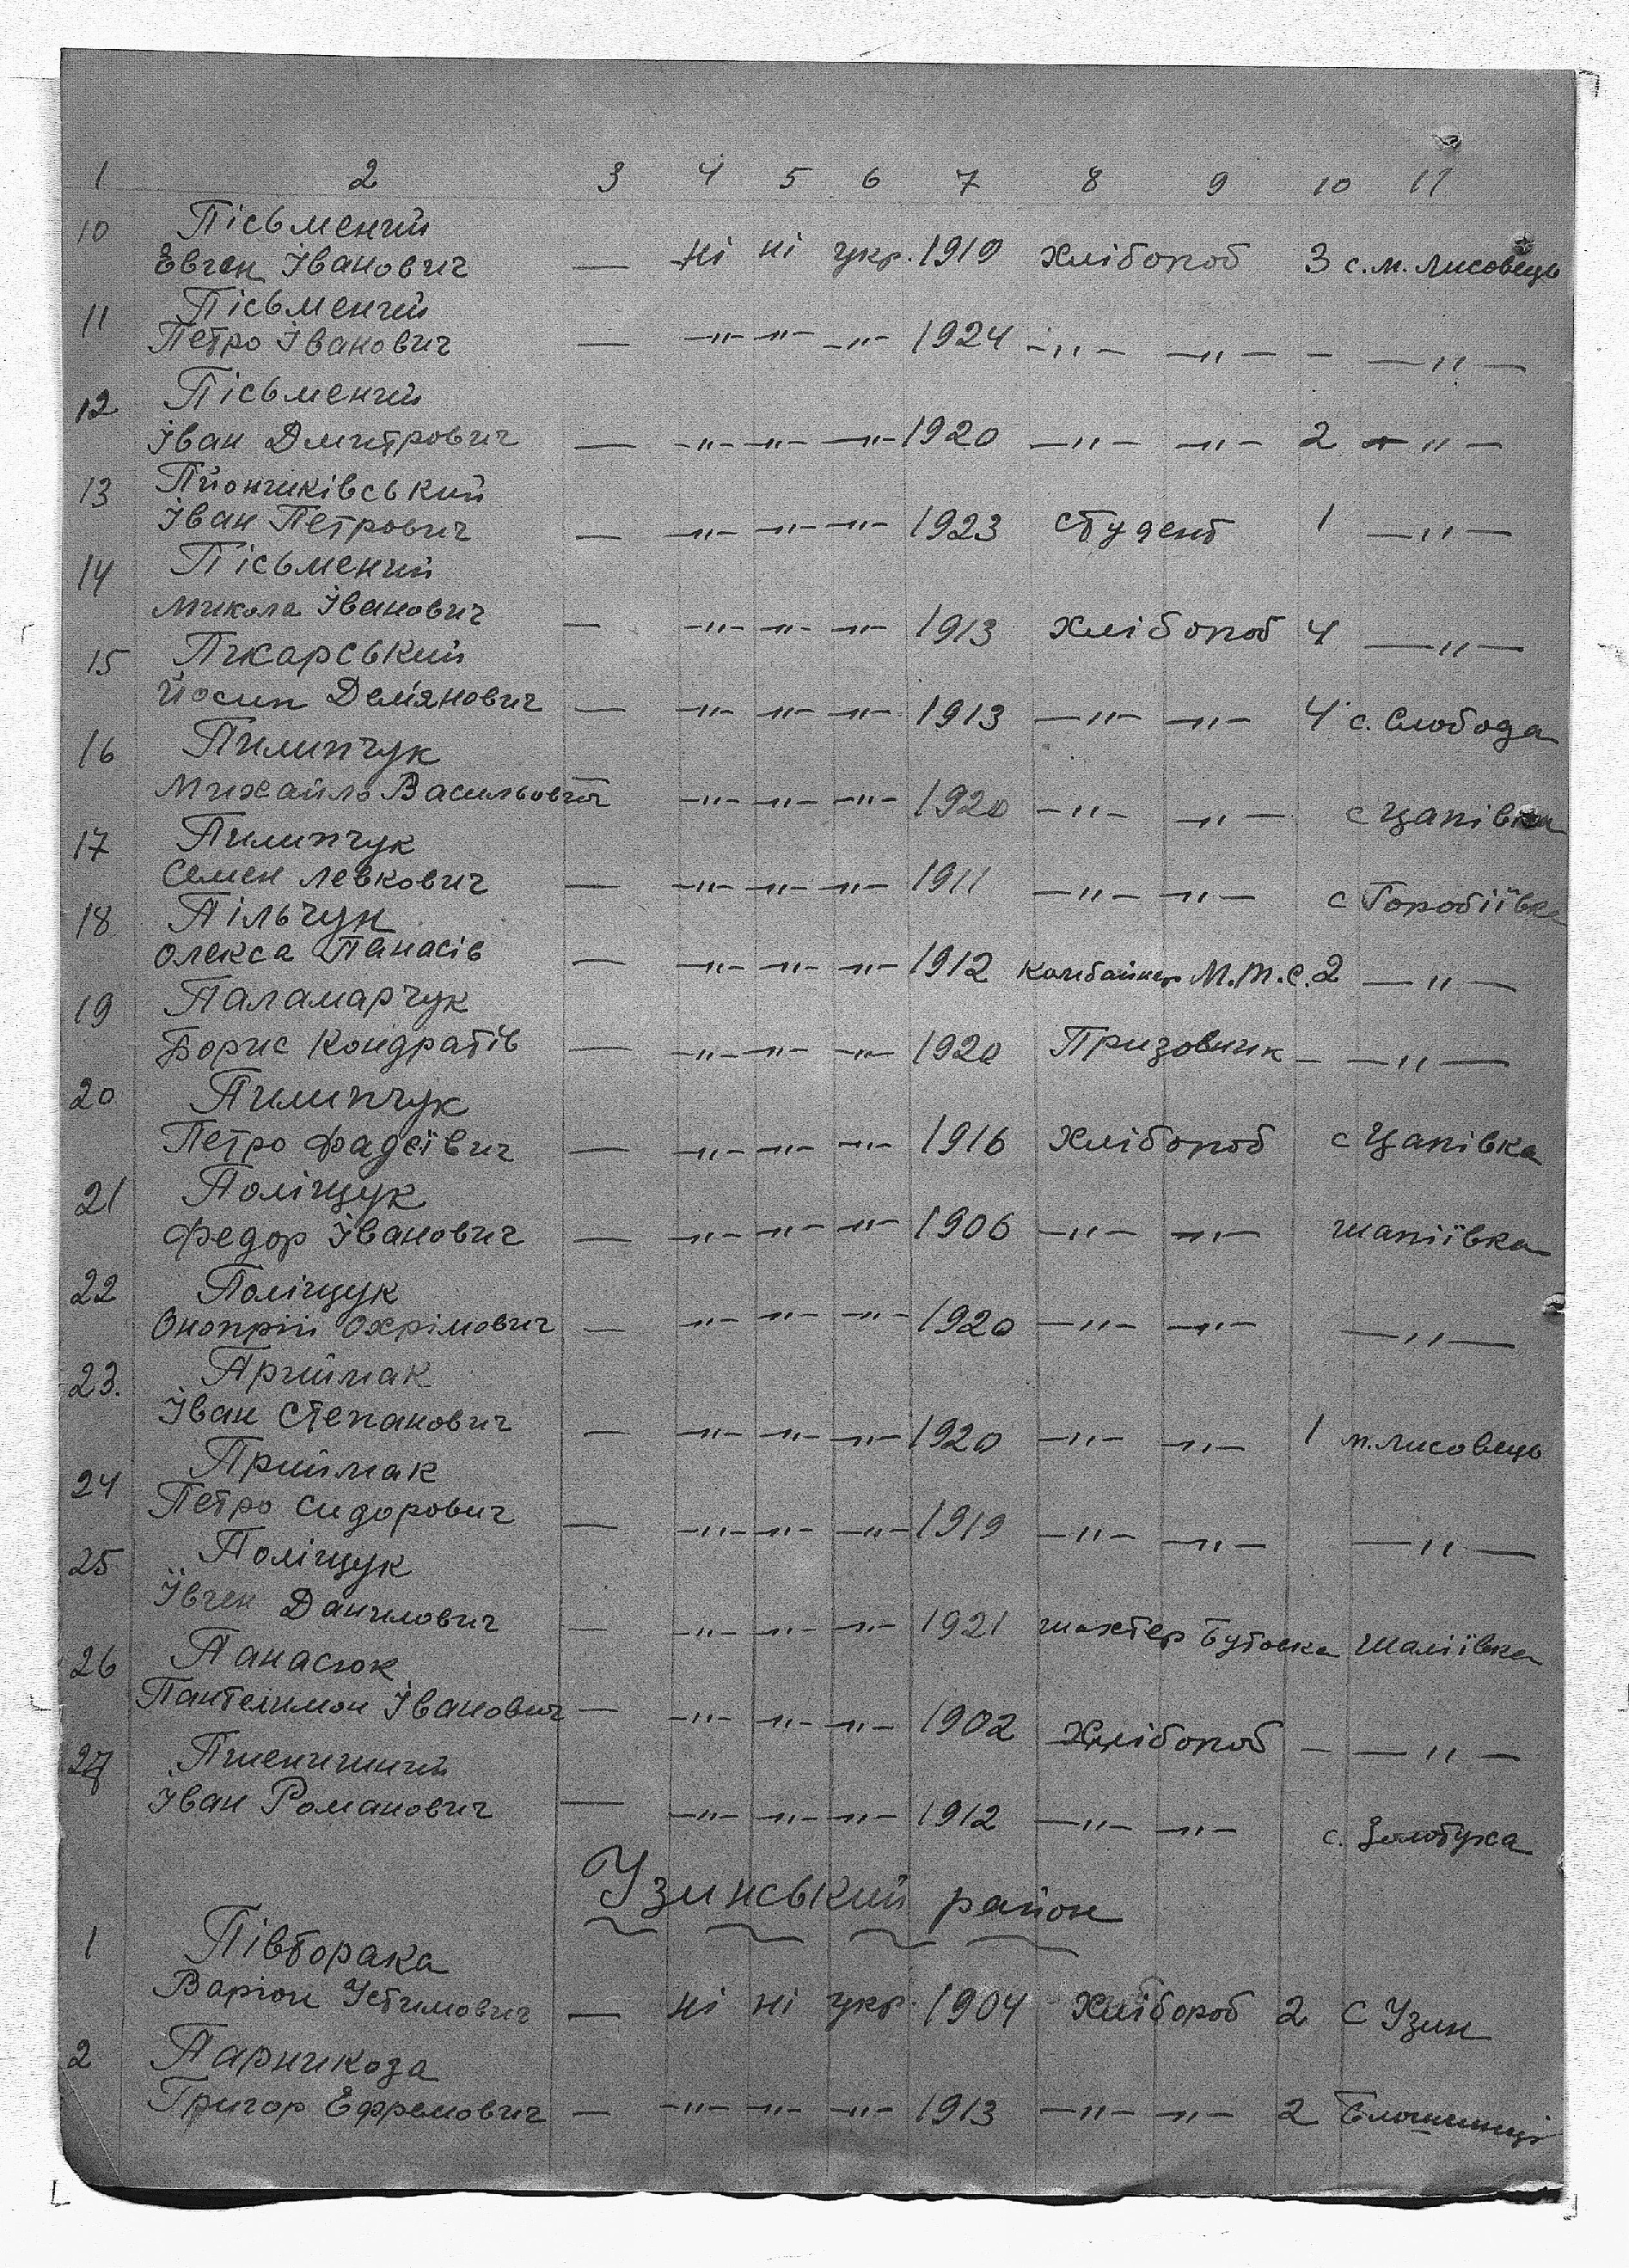 1 2 3 4 5 6 7 8 9 10 11
10 Пісьмений
Евген Іванович — ні ні укр. 1919 хлібороб 3 с. м. Лисовець
11 Пісьмений
Петро Іванович — –"– –"– –"– 1924 –"– –"– – –"–
12 Пісьмений
Іван Дмитрович — –"– –"– –"– 1920 –"– –"– 2 –"–
13 Пйончиківський
Іван Петрович — –"– –"– –"– 1923 студент 1 –"–
14 Пісьмений
Микола Іванович — –"– –"– –"– 1913 хлібороб 4 –"–
15 Пикарський
Йосип Демянович — –"– –"– –"– 1913 –"– –"– 4 с. Слобода
16 Пилипчук
Михайло Васильович — –"– –"– –"– 1920 –"– –"– с Цапівка
17 Пилипчук
Семен Левкович — –"– –"– –"– 1911 –"– –"– с Горобіївка
18 Пільчук
Олекса Панасів — –"– –"– –"– 1912 комбайнер М.Т.С. 2 –"–
19 Паламарчук
Борис Кондратів — –"– –"– –"– 1920 Призовник – –"–
20 Пилипчук
Петро Фадеївич — –"– –"– –"– 1916 хлібороб с Цапівка
21 Поліщук
Федор Іванович — –"– –"– –"– 1906 –"– –"– шапіївка
22 Поліщук
Онопрій Охрімович — –"– –"– –"– 1920 –"– –"– –"–
23. Приймак
Іван Степанович — –"– –"– –"– 1920 –"– –"– 1 м. Лисовець
24 Приймак
Петро Сидорович — –"– –"– –"– 1919 –"– –"– –"–
25 Поліщук
Ївген Данилович — –"– –"– –"– 1921 шахтер Бутовка Шаліївка
26 Панасюк
Пантелимон Іванович — –"– –"– –"– 1902 Хлібороб – –"–
27 Пшеничний
Іван Романович — –"– –"– –"– 1912 –"– –"– с. Золотуха
Узинський район
1 Півторака
Варіон Устимович — ні ні укр. 1904 хлібороб 2 С Узин
2 Парникоза
Григор Ефремович — –"– –"– –"– 1913 –"– –"– 2 Блощинці